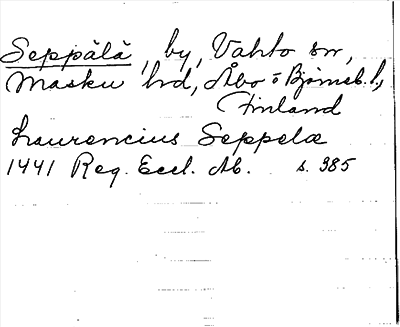 Seppälä, by, Vahto sn,
Masku hd, Åbo o Björneb. l,
Finland
Laurencius Seppelæ
1441 Reg. Eccl. Ab. s. 385